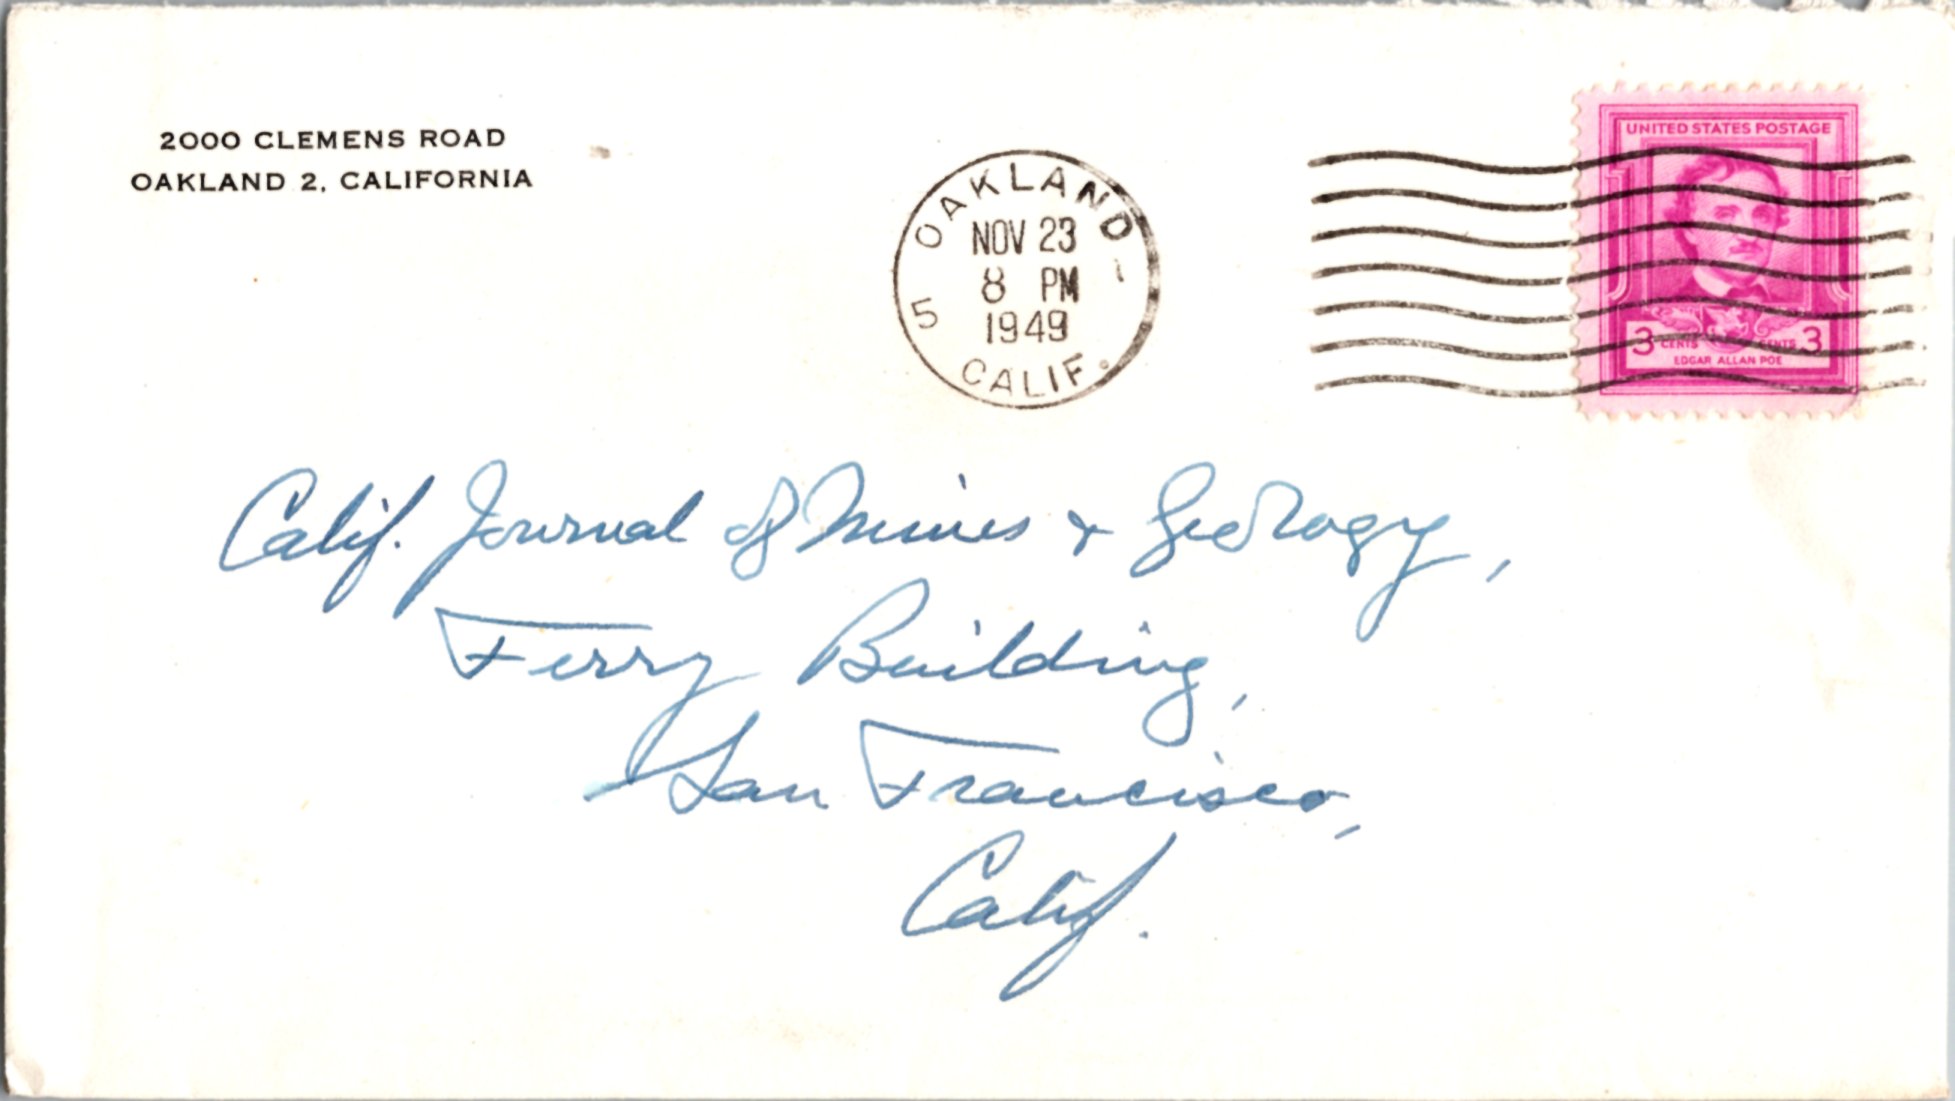 2000 CLEMENS ROAD
OAKLAND 2, CALIFORNIA
OAKLAND
NOV 23
8 PM
1949
5 1
CALIF.
UNITED STATES POSTAGE
3 CENTS CENTS 3
EDGAR ALLAN POE
Calif. Journal of Mines & Geology,
Ferry Building,
San Francisco,
Calif.